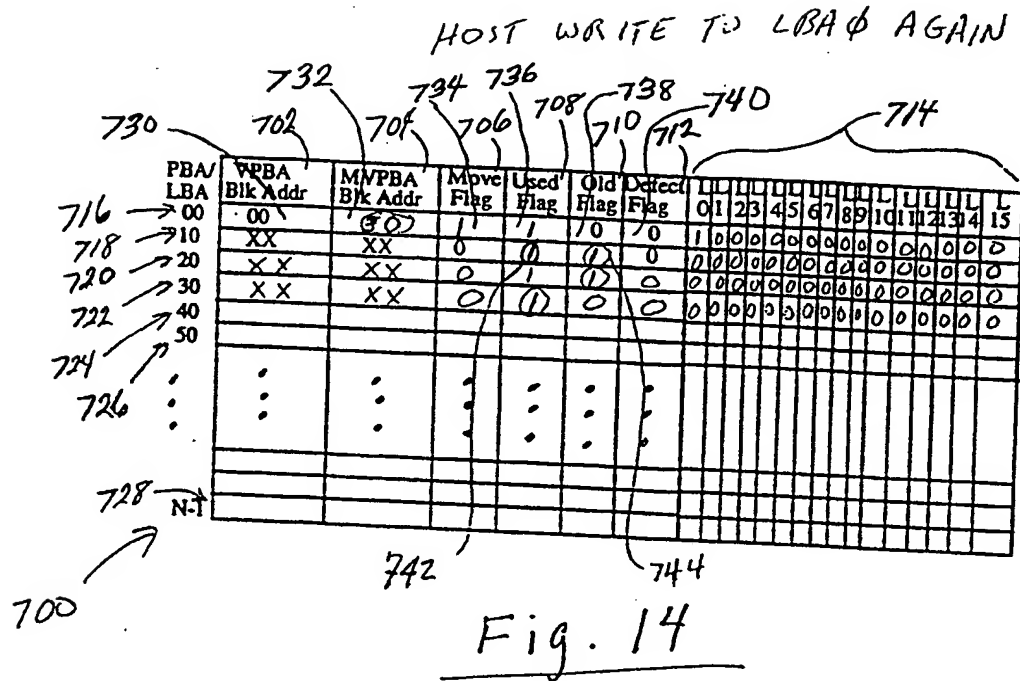 HOST WRITE TO LBAφ AGAIN
732 734 736 738 740 714
730 702 704 706 708 710 712
PBA/ LBA VPBA Blk Addr MVPBA Blk Addr Move Flag Used Flag Old Flag Defect Flag L 0 L 1 L 2 L 3 L 4 L 5 L 6 L 7 L 8 L 9 L 10 L 11 L 12 L 13 L 14 L 15
716 00 00 (30) 1 1 0 0 1 0 0 0 0 0 0 0 0 0 0 0 0 0 0 0
718 10 XX XX 0 (1) (1) 0 0 0 0 0 0 0 0 0 0 0 0 0 0 0 0 0
720 20 XX XX 0 1 (1) 0 0 0 0 0 0 0 0 0 0 0 0 0 0 0 0 0
722 30 XX XX 0 (1) 0 0 0 0 0 0 0 0 0 0 0 0 0 0 0 0 0 0
724 40
726 50
728 N-1
742 744
700
Fig. 14